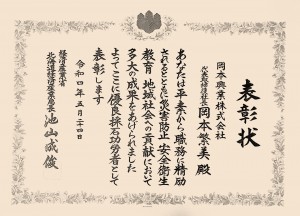 表彰状
岡本興業株式会社
代表取締役社長 岡本繁美 殿
あなたは平素から職務に精励
されるとともに災害防止 安全衛生
教育 地域社会への貢献において
多大の成果をあげられました
よってここに優良採石功労者として
表彰します
令和四年五月二十四日
経済産業省
北海道経済産業局長 池山成俊